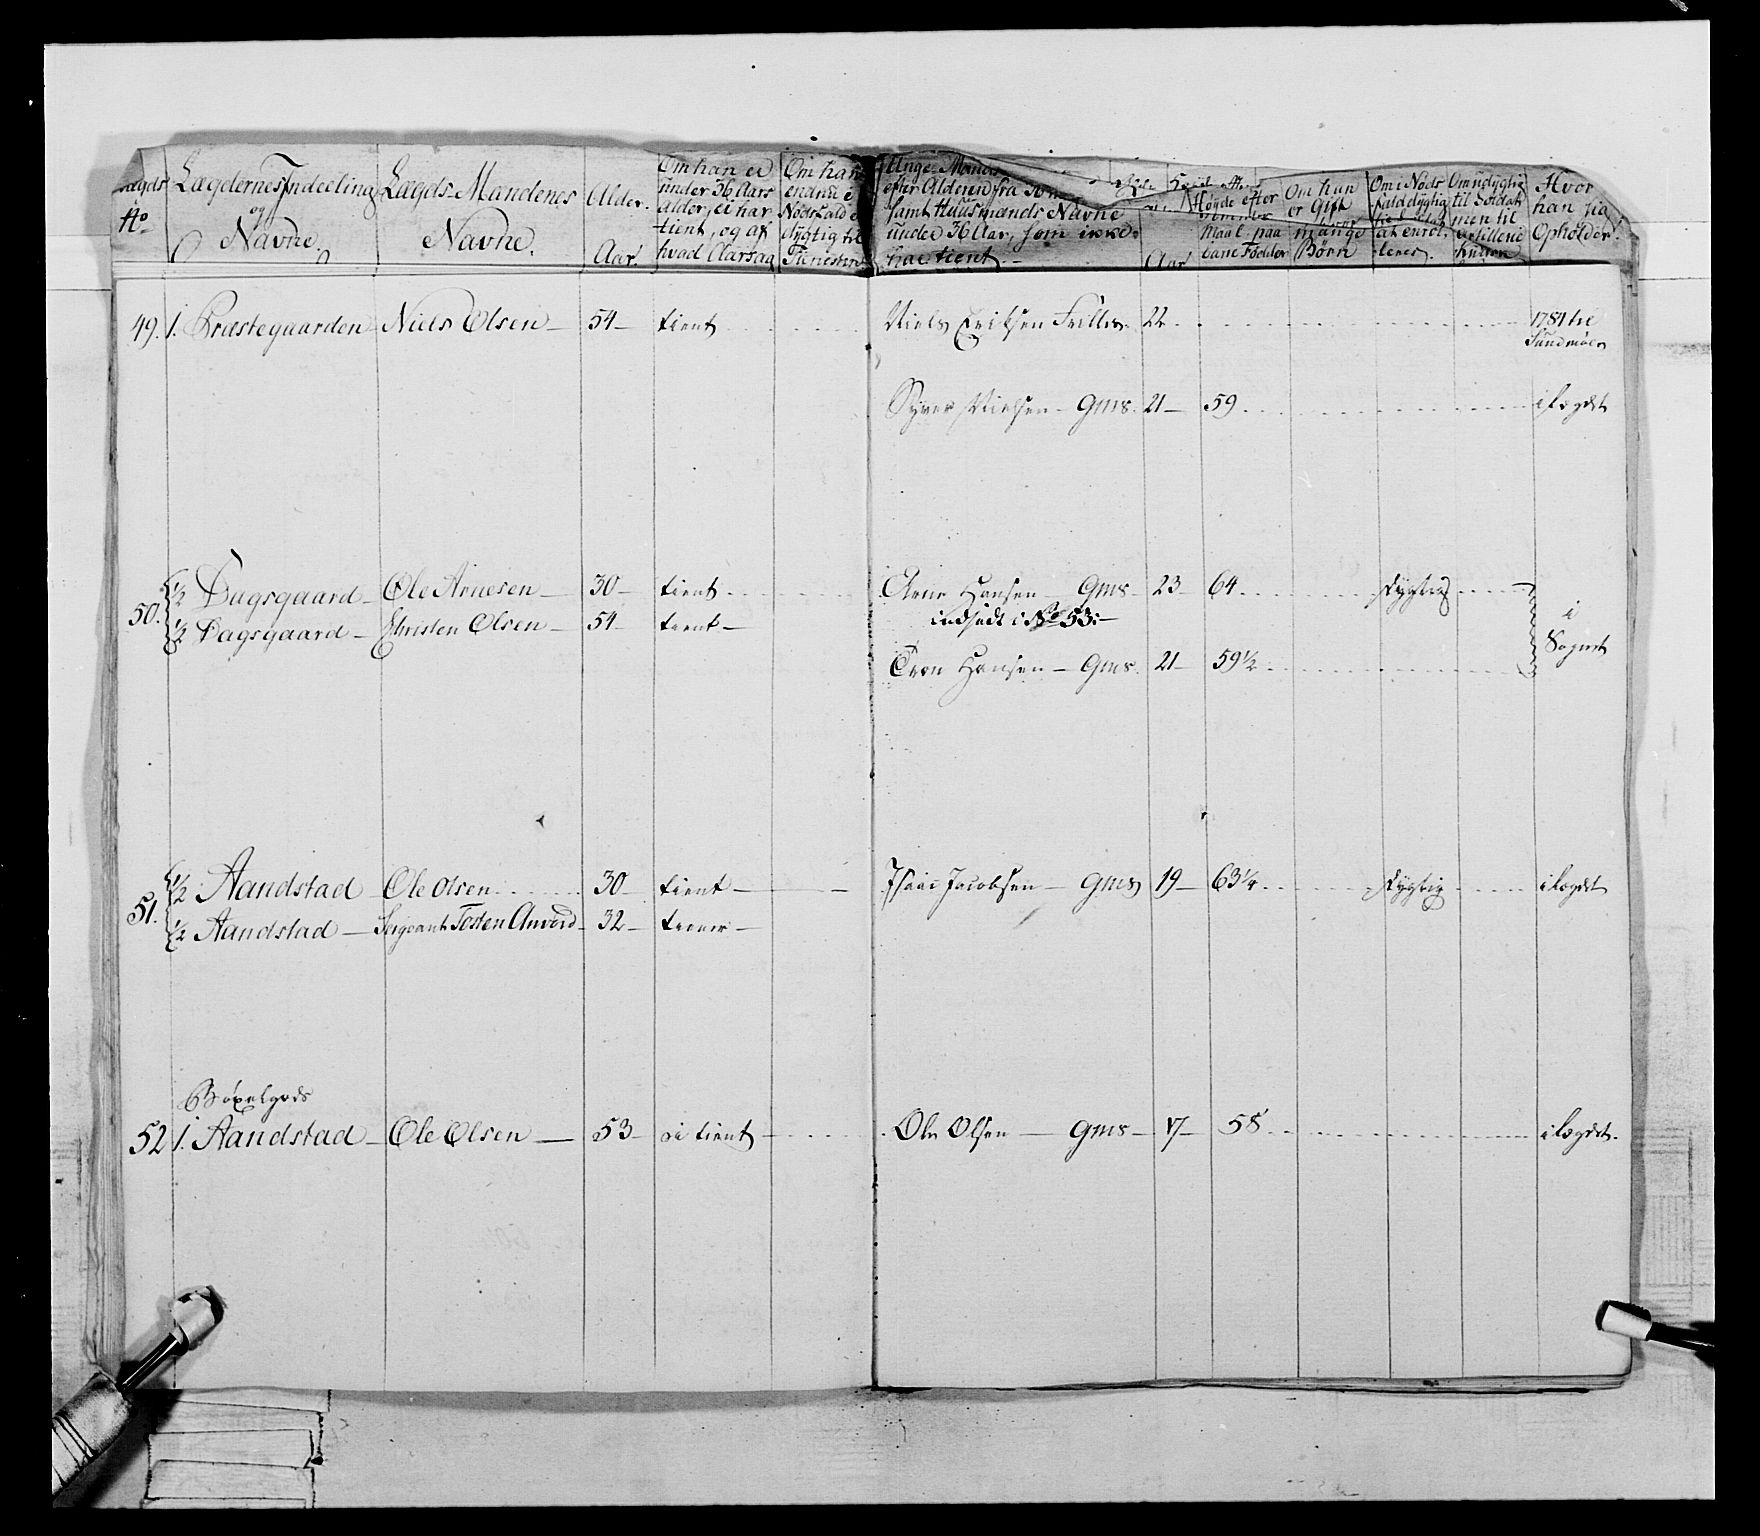 Lægds No
Lægdernes Indeeling og Navne.
Lægds-Mændenes Navne.
Alder. Aar.
Om han er under 36 Aars alder, ei har tient, og af hvad Aarsag
Om han enanu i Nødsfald er dygtig til Tienesten
Unge Mænds efter Alderen fra samt Huusmænds Navne under 36 Aar, som ikke har tient.
Aar
Høyde efter Maal paa bare Fødder
Om han er Gift mange Børn
Om i Nøds fald dygtig at enrol-leres.
Om udygtig til Soldat men til Artillerie
Hvor han sig Opholder.
49. 1. Præstegaarden - Niels Olsen - 54 - tient Niels Eriksen 22 1784 til Sundmøer
Syver Nielsen - Gms. 21 - 59 i Lægdet
50. ½ Dagsgaard - Ole Arnesen - 30 - tient Arne Hansen - Gms. 23 64 dygtig
indsadt i No 53:-
½ Dagsgaard - Christen Olsen - 54 - tient -
i Sognet
Hansen - Gms. 21 - 59½
51. ½ Aandstad - Ole Olsen 30 - tient - Isaac Jacobsen - Gms 19 - 63¼ dygtig i Lægdet
½ Aandstad - Sergeant Tosten Anvord - 32 - tiener -
Bøxelgods
52 1. Aandstad - Ole Olsen - 53 - ei tient - Ole Olsen - Gms - 17 - 58 i Lægdet.